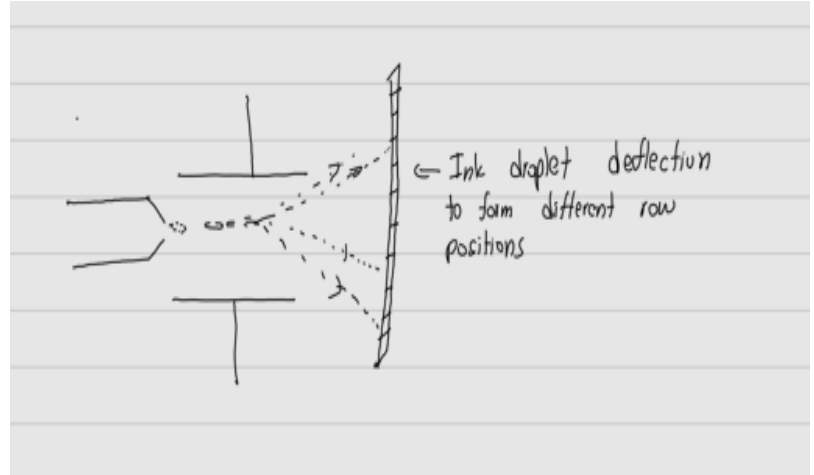 Ink droplet deflection
to form different row
positions